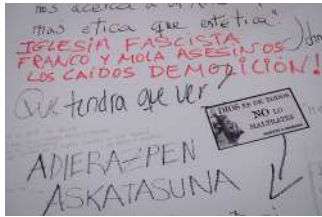 nos acerca a
mas etica que estética"
IGLESIA FASCISTA
FRANCO Y MOLA ASESINOS
LOS CAÍDOS DEMOLICIÓN!
Que tendra que ver
DIOS ES DE TODOS
NO LO
MALTRATES
ADIERAZPEN
ASKATASUNA